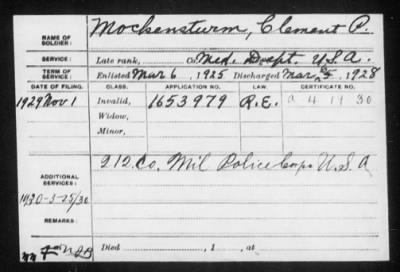 NAME OF SOLDIER: Mockensturm, Clement P.
SERVICE: Late rank, Co. Med. Dept. U.S.A.
TERM OF SERVICE: Enlisted Mar 6, 1925 Discharged Mar 5, 1928
DATE OF FILING. CLASS. APPLICATION NO. LAW. CERTIFICATE NO.
1929 Nov 1 Invalid, 1653979 R.E. a 4 11 30
Widow,
Minor,
ADDITIONAL SERVICES: 212. Co. Mil Police Corps U.S.A
1930-3-25/30
REMARKS:
Died , 1 , at